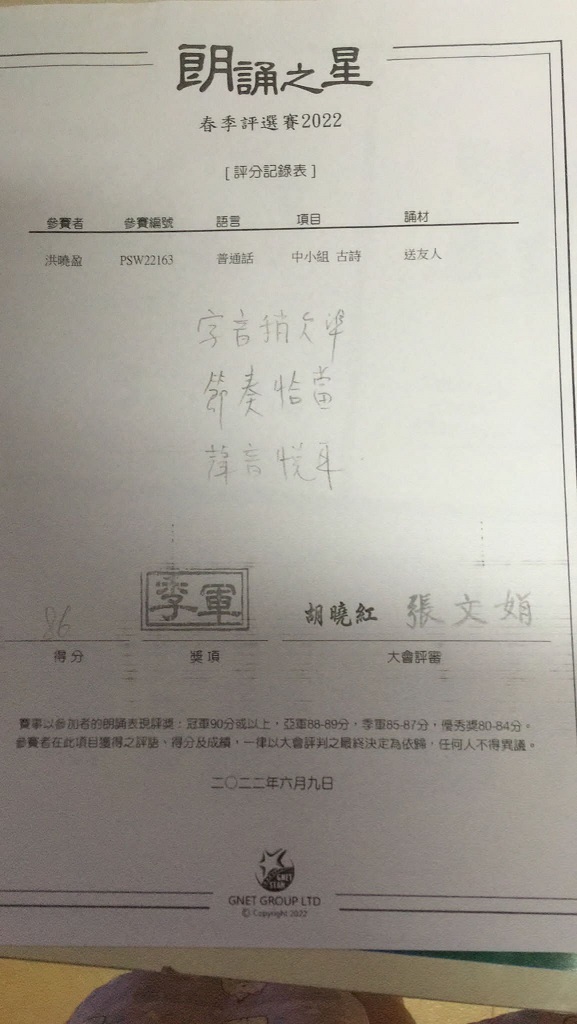 朗誦之星
春季評選賽2022
[ 評分記錄表 ]
參賽者 參賽編號 語言 項目 誦材
洪曉盈 PSW22163 普通話 中小組 古詩 送友人
字音稍欠準
節奏恰當
聲音悅耳
86 季軍 胡曉紅 張文娟
得分 獎項 大會評審
賽事以參加者的朗誦表現評獎：冠軍90分或以上，亞軍88-89分，季軍85-87分，優秀獎80-84分。
參賽者在此項目獲得之評語、得分及成績，一律以大會評判之最終決定為依歸，任何人不得異議。
二〇二二年六月九日
GNET STAR
GNET GROUP LTD
© Copyright 2022